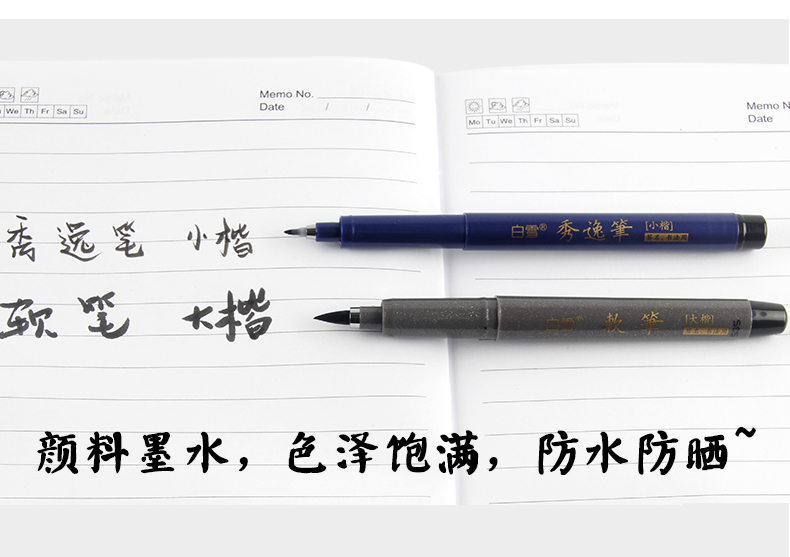 Memo No.
Date / /
We Th Fr Sa Su
Memo N
Date
Mo Tu We Th Fr Sa Su
秀逸笔 小楷
白雪® 秀逸筆 [小楷]
软笔 大楷
白雪® 軟筆 [大楷]
颜料墨水，色泽饱满，防水防晒~